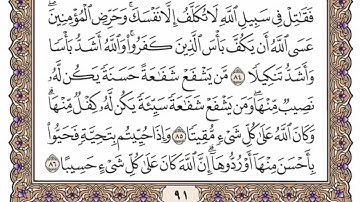 فَقَٰتِلْ فِى سَبِيلِ ٱللَّهِ لَا تُكَلَّفُ إِلَّا نَفْسَكَ ۚ وَحَرِّضِ ٱلْمُؤْمِنِينَ ۖ
عَسَى ٱللَّهُ أَن يَكُفَّ بَأْسَ ٱلَّذِينَ كَفَرُوا۟ ۚ وَٱللَّهُ أَشَدُّ بَأْسًا
وَأَشَدُّ تَنكِيلًا ٨٤ مَّن يَشْفَعْ شَفَٰعَةً حَسَنَةً يَكُن لَّهُۥ
نَصِيبٌ مِّنْهَا ۖ وَمَن يَشْفَعْ شَفَٰعَةً سَيِّئَةً يَكُن لَّهُۥ كِفْلٌ مِّنْهَا ۗ
وَكَانَ ٱللَّهُ عَلَىٰ كُلِّ شَىْءٍ مُّقِيتًا ٨٥ وَإِذَا حُيِّيتُم بِتَحِيَّةٍ فَحَيُّوا۟
بِأَحْسَنَ مِنْهَآ أَوْ رُدُّوهَآ ۗ إِنَّ ٱللَّهَ كَانَ عَلَىٰ كُلِّ شَىْءٍ حَسِيبًا ٨٦
٩١